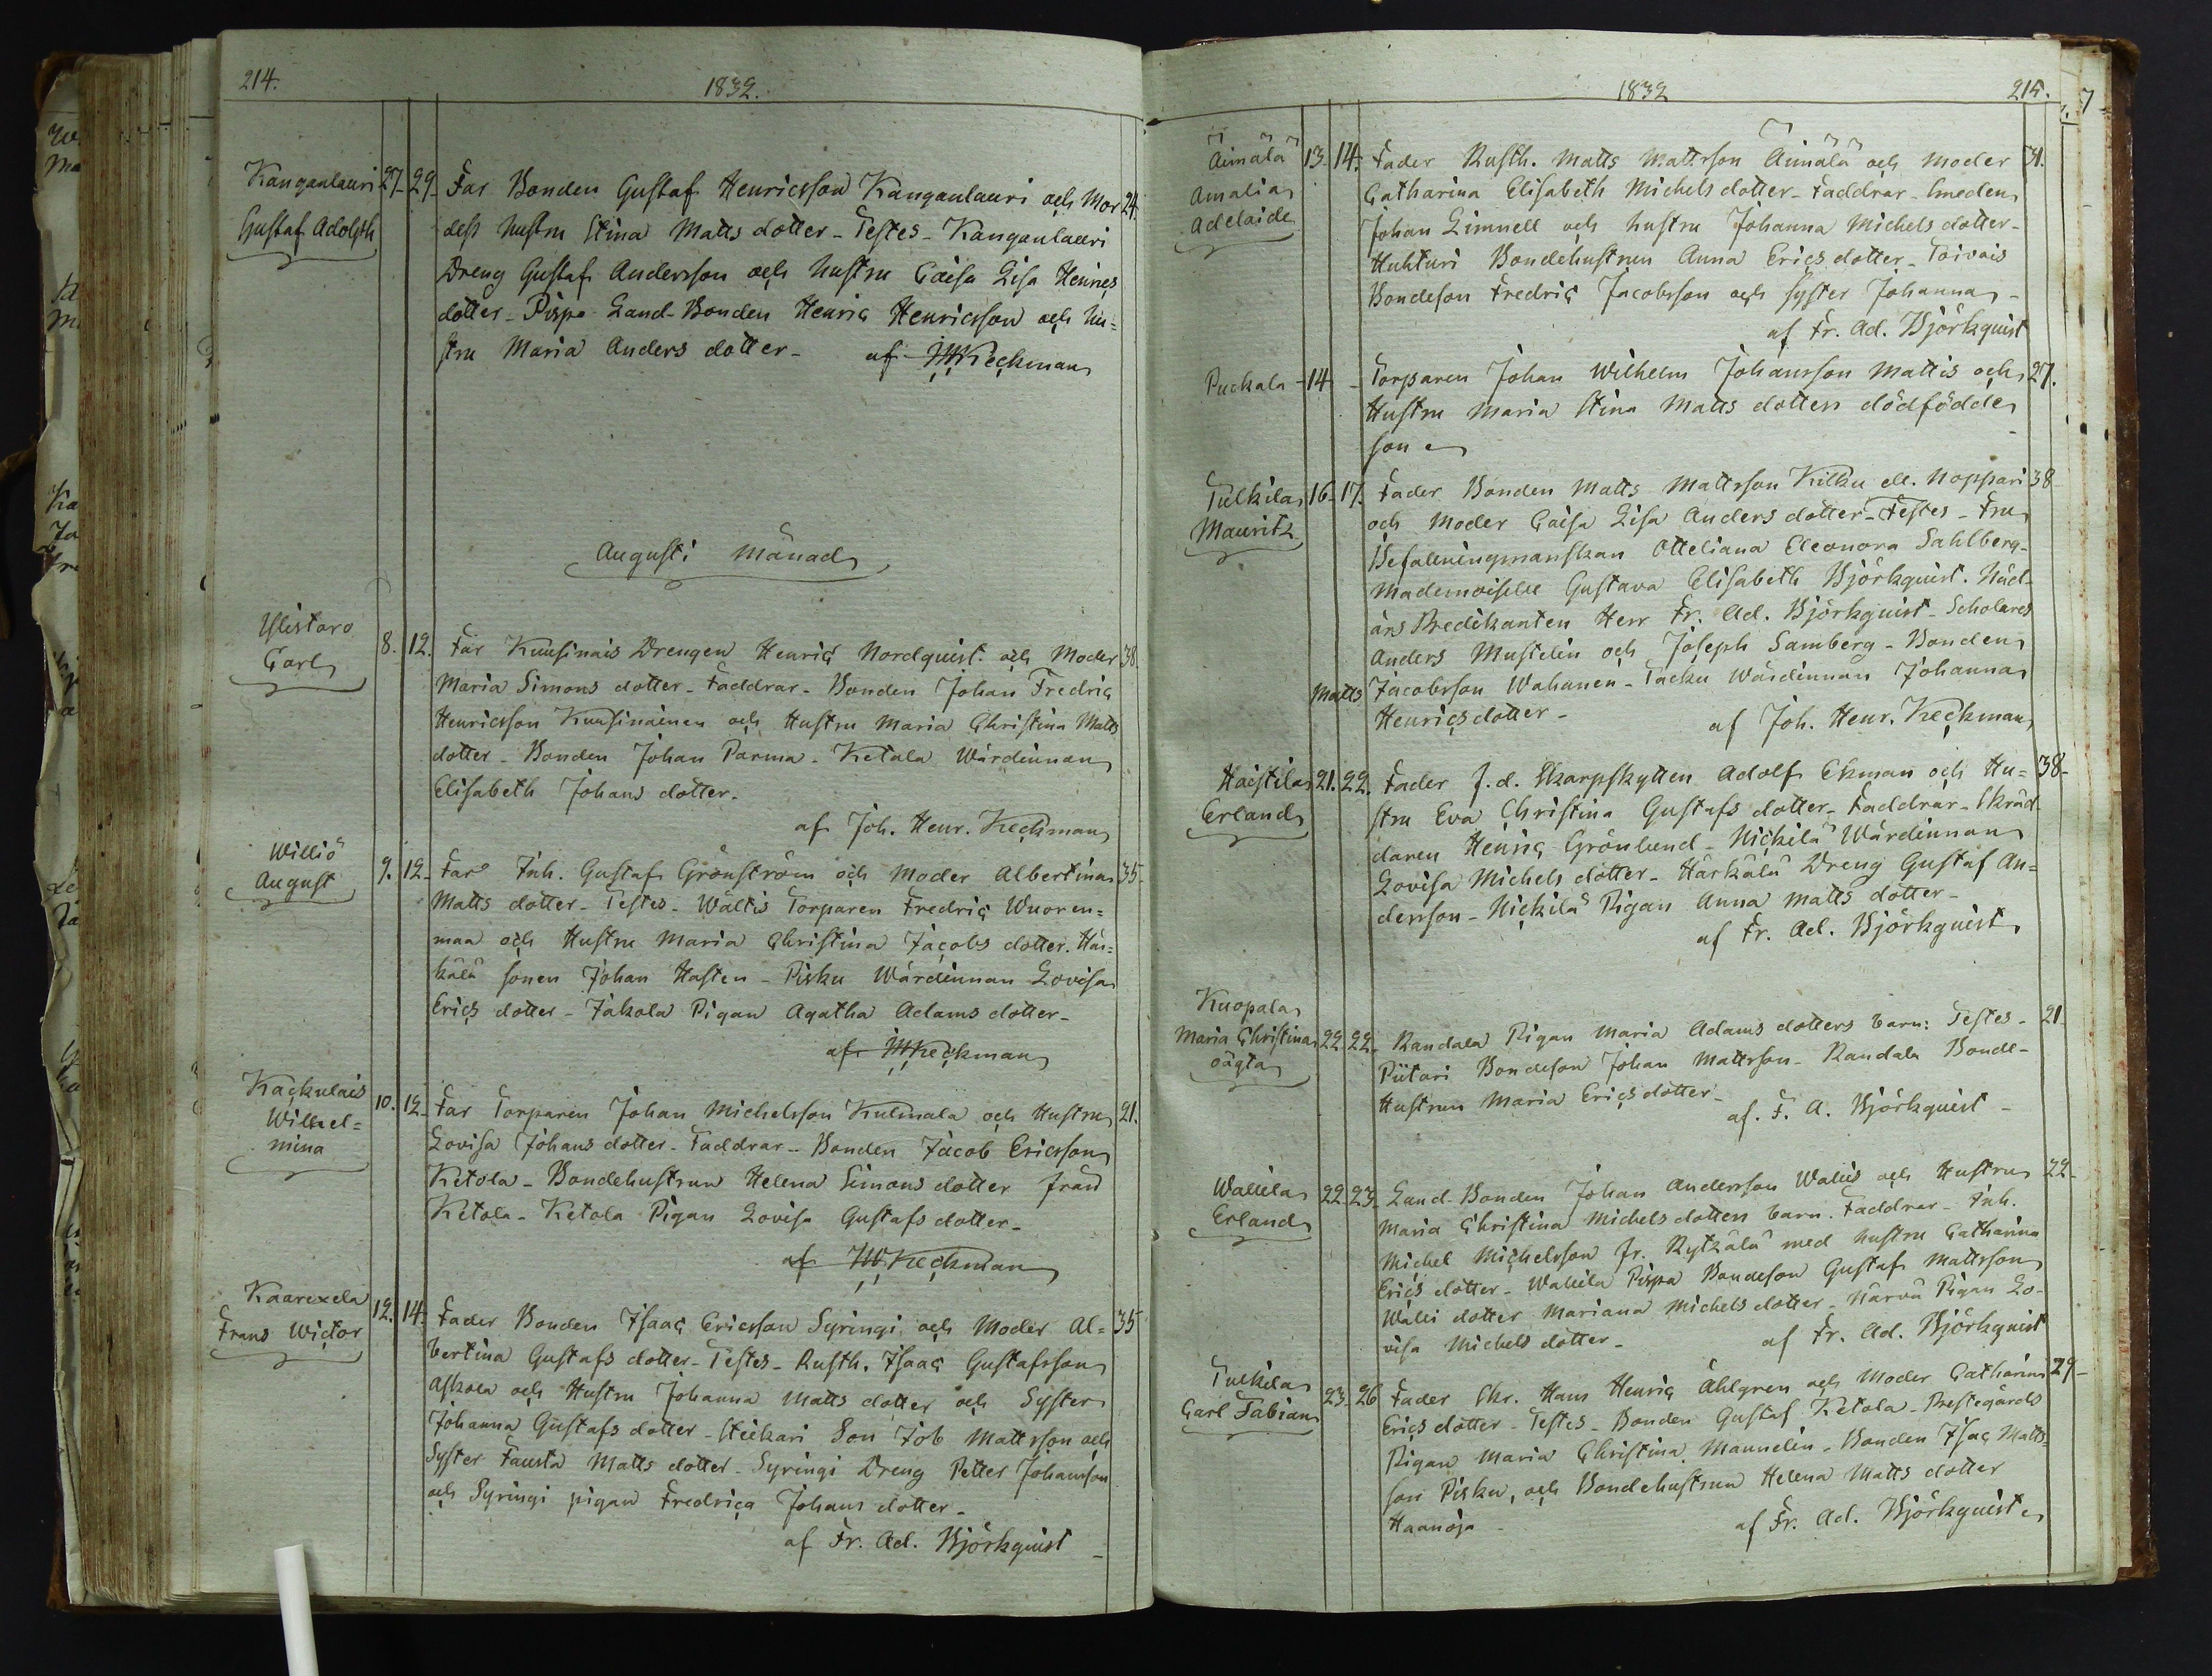 214.
1832.
Kanganlauri 27. 29. Far Bonden Gustaf Henricsson Kanganlauri och Mor 24.
Gustaf Adolph dess hustru Stina Matts dotter - Testes - Kanganlauri
Dreng Gustaf Andersson och hustru Caisa Lisa Henrics
dotter - Pispa Land-Bonden Henric Henricsson och hu=
stru Maria Anders dotter - af JHKeckman
Augusti Månad
Ylistaro 8. 12. Far Kuusinais Drengen Henric Nordquist och Moder 38.
Carl Maria Simons dotter - Faddrar - Bonden Johan Fredric
Henricsson Kuusinainen och Hustru Maria Christina Matts
dotter - Bonden Johan Parma - Ketala Wärdinnan
Elisabeth Johans dotter.
af Joh. Henr. Keckman
Williö 9. 12. Far Inh. Gustaf Grönström och Moder Albertina 35.
August Matts dotter - Testes - Wältis Torparen Fredric Wuoren=
maa och Hustru Maria Christina Jacobs dotter. Här=
kälä sonen Johan Hasten - Pisku Wärdinnan Lovisa
Erics dotter - Jakola Pigan Agatha Adams dotter -
af JHKeckman
Kackulais 10. 12. Far Torparen Johan Michelsson Kulmala och Hustru 21.
Wilhel= Lovisa Johans dotter - Faddrar - Bonden Jacob Ericsson
mina Ketola - Bondehustrun Helena Simons dotter från
Ketola - Ketola Pigan Lovisa Gustafs dotter -
af JHKeckman
Kaarexela 12. 14. Fader Bonden Isaac Ericsson Syringi och Moder Al= 35
Frans Wictor bertina Gustafs dotter - Testes - Rusth. Isaac Gustafsson
Askola och Hustru Johanna Matts dotter och Syster
Johanna Gustafs dotter - Stickari Son Job Mattsson och
Syster Fausta Matts dotter - Syringi Dreng Petter Johansson
och Syringi pigan Fredrica Johans dotter -
af Fr. Ad. Björkquist -
1832
215.
Äimälä 13. 14. Fader Rusth. Matts Mattsson Äimälä och Moder 31.
Amalia Catharina Elisabeth Michels dotter - Faddrar - Smeden
Adelaide Johan Limnell och hustru Johanna Michels dotter -
Huhturi Bondehustrun Anna Erics dotter - Toivois
Bondeson Fredric Jacobsson och Syster Johanna -
af Fr. Ad. Björkquist
Puckala - 14 - Torparen Johan Wilhelm Johansson Mattis och 27.
Hustru Maria Stina Matts dotters dödfödde
son
Tulkila 16. 17. Fader Bonden Matts Mattsson Kilku ell. Noppari 38
Mauritz och Moder Caisa Lisa Anders dotter - Testes - Fru
Befallningmanskan Otteliana Eleonora Sahlberg -
Mademoiselle Gustava Elisabeth Björkquist. Nåd-
års Predikanten Herr Fr. Ad. Björkquist - Scholares
Anders Mustelin och Joseph Samberg - Bonden
Matts Jacobsson Wahanen - Tacku Wärdinnan Johanna
Henricsdotter - af Joh. Henr. Keckman
Haistila 21. 22. Fader f.d. Skarpskytten Adolf Ekman och Hu= 38-
Erland stru Eva Christina Gustafs dotter - Faddrar - Skräd-
daren Henric Grönlund - Nickilä Wärdinnan
Lovisa Michels dotter - Härkälä Dreng Gustaf An=
dersson - Nickilä Pigan Anna Matts dotter -
af Fr. Ad. Björkquist
Kuopala
Maria Christina 22. 22. Randala Pigan Maria Adams dotters barn: Testes - 21.
oägta Piitari Bondeson Johan Mattsson - Randala Bonde-
Hustrun Maria Ericsdotter -
af. F. A. Björkquist -
Wallila 22. 23. Land-Bonden Johan Andersson Walus och Hustru 22-
Erland Maria Christina Michels dotters barn. Faddrar - Inh.
Michel Michelsson fr. Rytkälä med hustru Catharina
Erics dotter - Wallila Pispa Bondeson Gustaf Mattsson
Walli dotter Mariana Michels dotter - Närvä Pigan Lo-
visa Michels dotter - af Fr. Ad. Björkquist
Tulkila 23. 26 Fader Skr. Hans Henric Ahlgren och Moder Catharina 29-
Carl Fabian Erics dotter - Testes - Bonden Gustaf Ketola - Prestegårds
Pigan Maria Christina Mannelin - Bonden Isac Matts=
son Pisku, och Bondehustrun Helena Matts dotter
Haanoja - af Fr. Ad. Björkquist